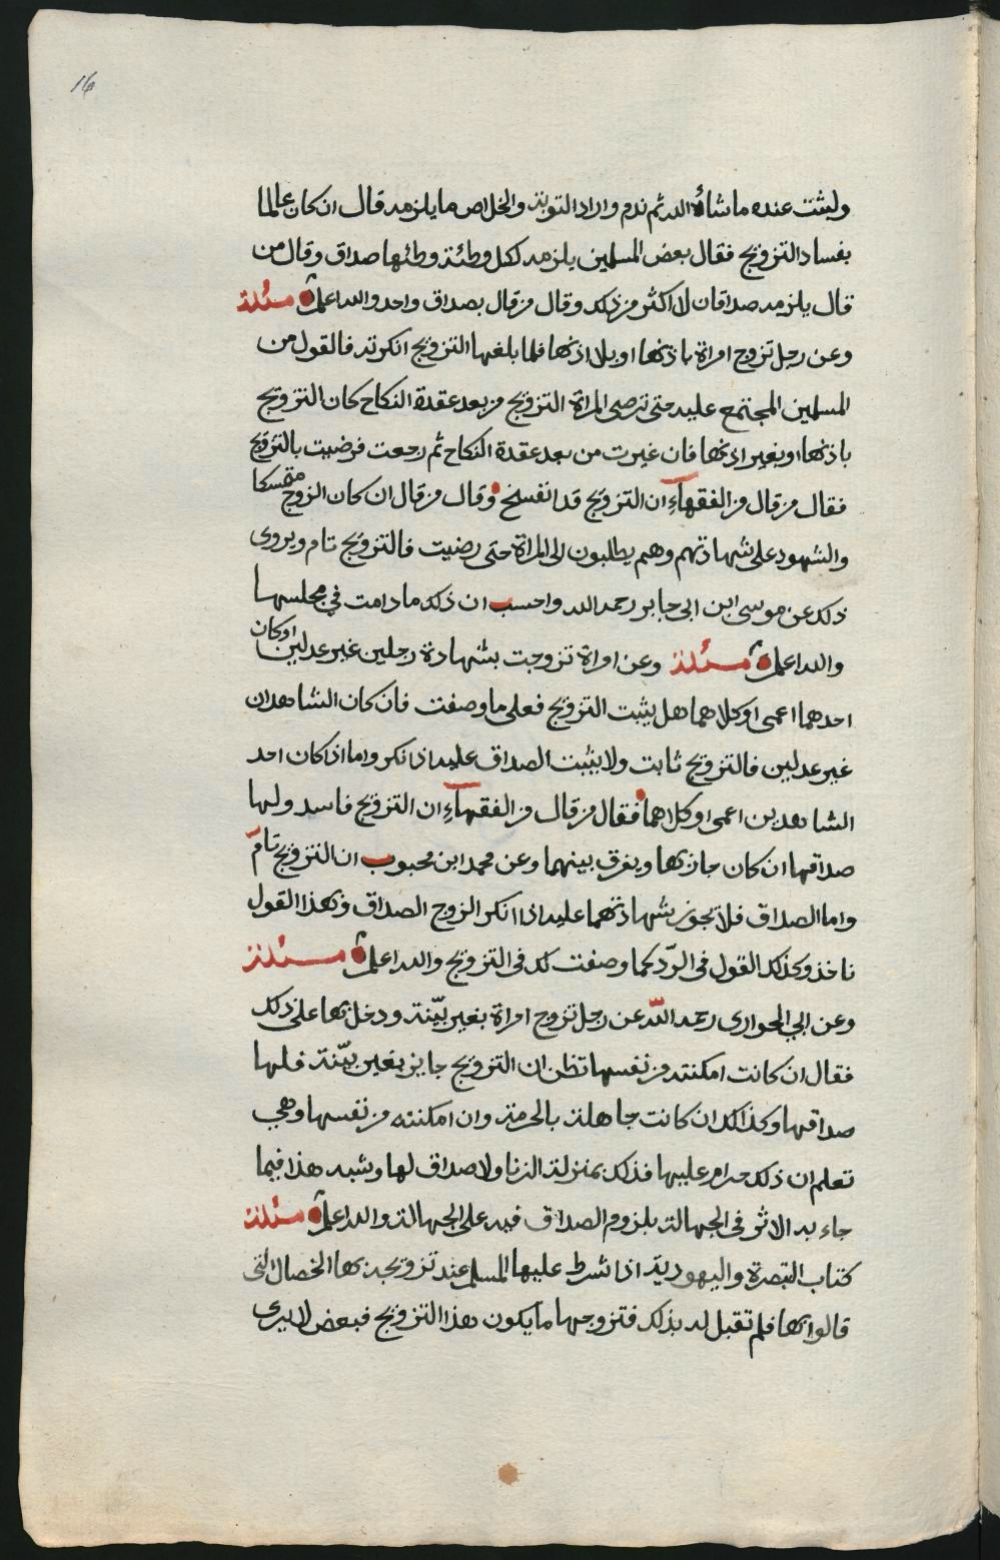 16
ولبثت عنده ما شاء الله ثم ندم واراد التوبة والخلاص ما يلزمه قال ان كان عالما
بفساد التزويج فقال بعض المسلمين يلزمه لكل وطئة وطئها صداق وقال من
قال يلزمه صداقان لا اكثر من ذلك وقال من قال بصداق واحد والله اعلم مسئلة
وعن رجل تزوج امراة باذنها او بلا اذنها فلما بلغها التزويج انكرته فالقول من
المسلمين المجتمع عليه حتى ترضى المراة التزويج من بعد عقدة النكاح كان التزويج
باذنها او بغير اذنها فان غيرت من بعد عقدة النكاح ثم رجعت فرضيت بالتزويج
فقال من قال من الفقهاء ان التزويج قد انفسخ وقال من قال ان كان الزوج متمسكا
والشهود على شهادتهم وهم يطلبون الى المراة حتى رضيت فالتزويج تام ويروى
ذلك عن موسى ابن ابي جابر رحمه الله واحسب ان ذلك ما دامت في مجلسها
والله اعلم مسئلة وعن امراة تزوجت بشهادة رجلين غير عدلين او كان
احدهما اعمى او كلاهما هل يثبت التزويج فعلى ما وصفت فان كان الشاهدان
غير عدلين فالتزويج ثابت ولا يثبت الصداق عليه اذا نكر واما اذا كان احد
الشاهدين اعمى او كلاهما فقال من قال من الفقهاء ان التزويج فاسد ولها
صداقها ان كان جاز بها ويفرق بينهما وعن محمد ابن محبوب ان التزويج تام
واما الصداق فلا تجوز شهادتهما عليه اذا انكر الزوج الصداق وبهذا القول
ناخذ وكذلك القول في الردّ كما وصفت لك في التزويج والله اعلم مسئلة
وعن ابي الحواري رحمه الله عن رجل تزوج امراة بغير بيّنة ودخل بها على ذلك
فقال ان كانت امكنته من نفسها تظن ان التزويج جايز بغير بيّنة فلها
صداقها وكذلك ان كانت جاهلة بالحرمة وان امكنته من نفسها وهي
تعلم ان ذلك حرام عليها فذلك بمنزلة الزنا ولا صداق لها وشبه هذا فيما
جاء به الاثر في الجهالة بلزوم الصداق فيه على الجهالة والله اعلم مسئلة
كتاب التبصرة واليهودية اذا شرط عليها المسلم عند تزويجه بها الخصال التى
قالوا بها فلم تقبل له بذلك فتزوجها ما يكون هذا التزويج فبعض لا يرى